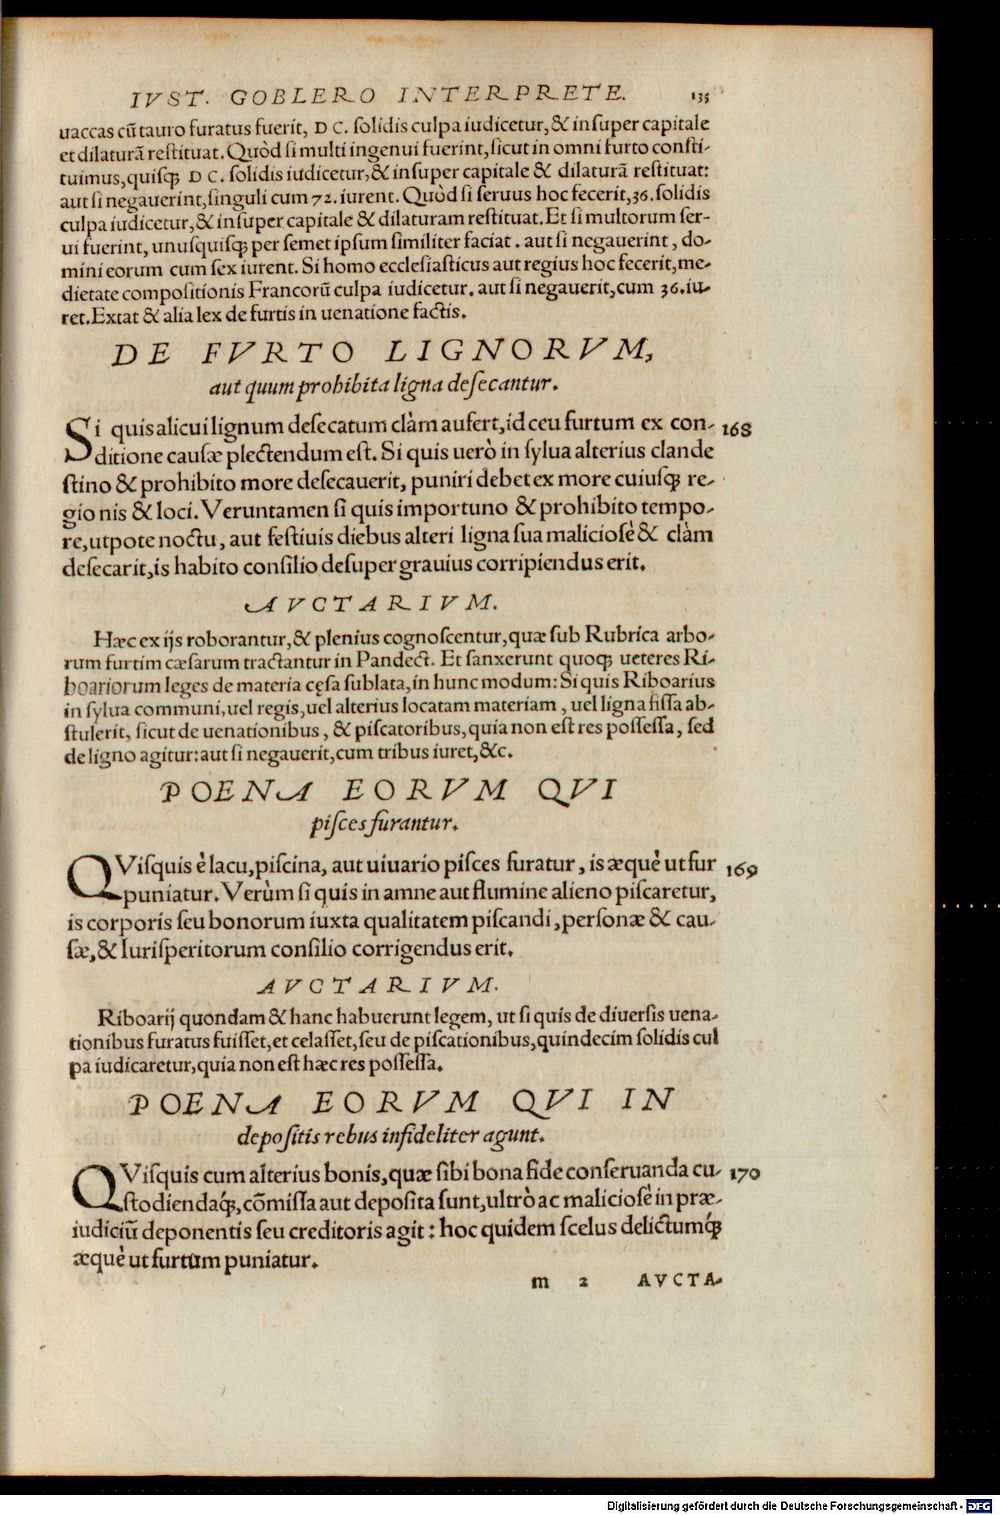 IVST. GOBLERO INTERPRETE. 135
uaccas cū tauro furatus fuerit, DC. ſolidis culpa iudicetur, & inſuper capitale
et dilaturā reſtituat. Quòd ſi multi ingenui fuerint, ſicut in omni furto conſti-
tuimus, quiſq; DC. ſolidis iudicetur, & inſuper capitale & dilaturā reſtituat:
aut ſi negauerint, ſinguli cum 72. iurent. Quòd ſi ſeruus hoc fecerit, 36. ſolidis
culpa iudicetur, & inſuper capitale & dilaturam reſtituat. Et ſi multorum ſer-
ui fuerint, unuſquiſq; per ſemet ipſum ſimiliter faciat. aut ſi negauerint, do-
mini eorum cum ſex iurent. Si homo eccleſiaſticus aut regius hoc fecerit, me-
dietate compoſitionis Francorū culpa iudicetur. aut ſi negauerit, cum 36. iu-
ret. Extat & alia lex de furtis in uenatione factis.
DE FVRTO LIGNORVM,
aut quum prohibita ligna deſecantur.
Si quis alicui lignum deſecatum clàm aufert, id ceu furtum ex con- 168
ditione cauſæ plectendum eſt. Si quis uerò in ſylua alterius clande
ſtino & prohibito more deſecauerit, puniri debet ex more cuiuſq; re-
gio nis & loci. Veruntamen ſi quis importuno & prohibito tempo-
re, utpote noctu, aut feſtiuis diebus alteri ligna ſua malicioſè & clàm
deſecarit, is habito conſilio deſuper grauius corripiendus erit.
AVCTARIVM.
Hæc ex ijs roborantur, & plenius cognoſcentur, quæ ſub Rubrica arbo-
rum furtim cæſarum tractantur in Pandect. Et ſanxerunt quoq; ueteres Ri-
boariorum leges de materia cęſa ſublata, in hunc modum: Si quis Riboarius
in ſylua communi, uel regis, uel alterius locatam materiam, uel ligna fiſſa ab-
ſtulerit, ſicut de uenationibus, & piſcatoribus, quia non eſt res poſſeſſa, ſed
de ligno agitur: aut ſi negauerit, cum tribus iuret, &c.
POENA EORVM QVI
piſces furantur.
QViſquis è lacu, piſcina, aut uiuario piſces furatur, is æquè ut fur 169
puniatur. Verùm ſi quis in amne aut flumine alieno piſcaretur,
is corporis ſeu bonorum iuxta qualitatem piſcandi, perſonæ & cau-
ſæ, & Iuriſperitorum conſilio corrigendus erit.
AVCTARIVM.
Riboarij quondam & hanc habuerunt legem, ut ſi quis de diuerſis uena-
tionibus furatus fuiſſet, et celaſſet, ſeu de piſcationibus, quindecim ſolidis cul
pa iudicaretur, quia non eſt hæc res poſſeſſa.
POENA EORVM QVI IN
depoſitis rebus infideliter agunt.
QViſquis cum alterius bonis, quæ ſibi bona fide conſeruanda cu- 170
ſtodiendaq́;, cōmiſſa aut depoſita ſunt, ultrò ac malicioſè in præ-
iudiciū deponentis ſeu creditoris agit: hoc quidem ſcelus delictumq́;
æquè ut furtum puniatur.
m 2 AVCTA-
Digitalisierung gefördert durch die Deutsche Forschungsgemeinschaft - DFG